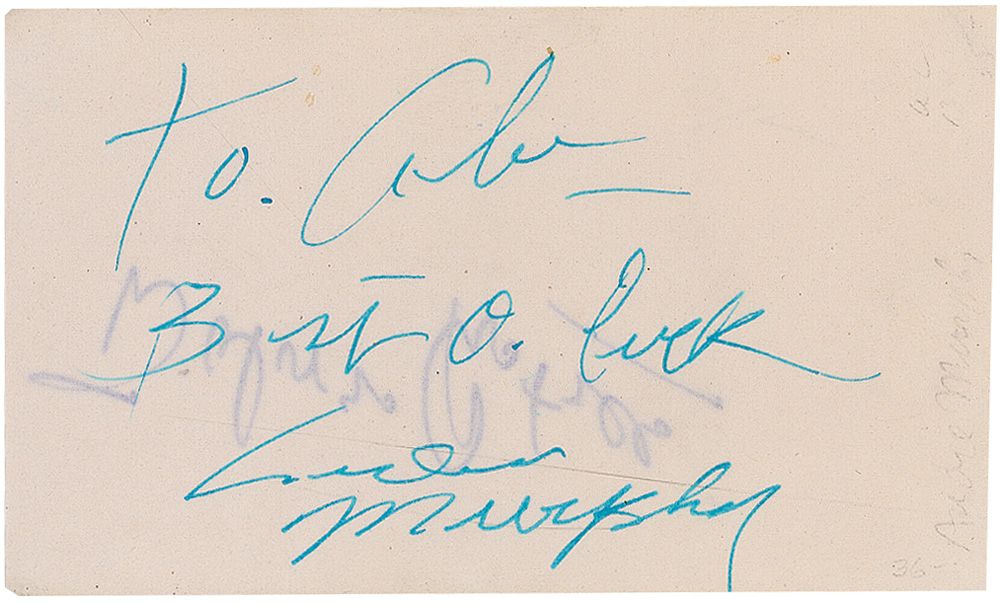 To. Abe
Best O. luck
Audie
Murphy
Audie Murphy
36